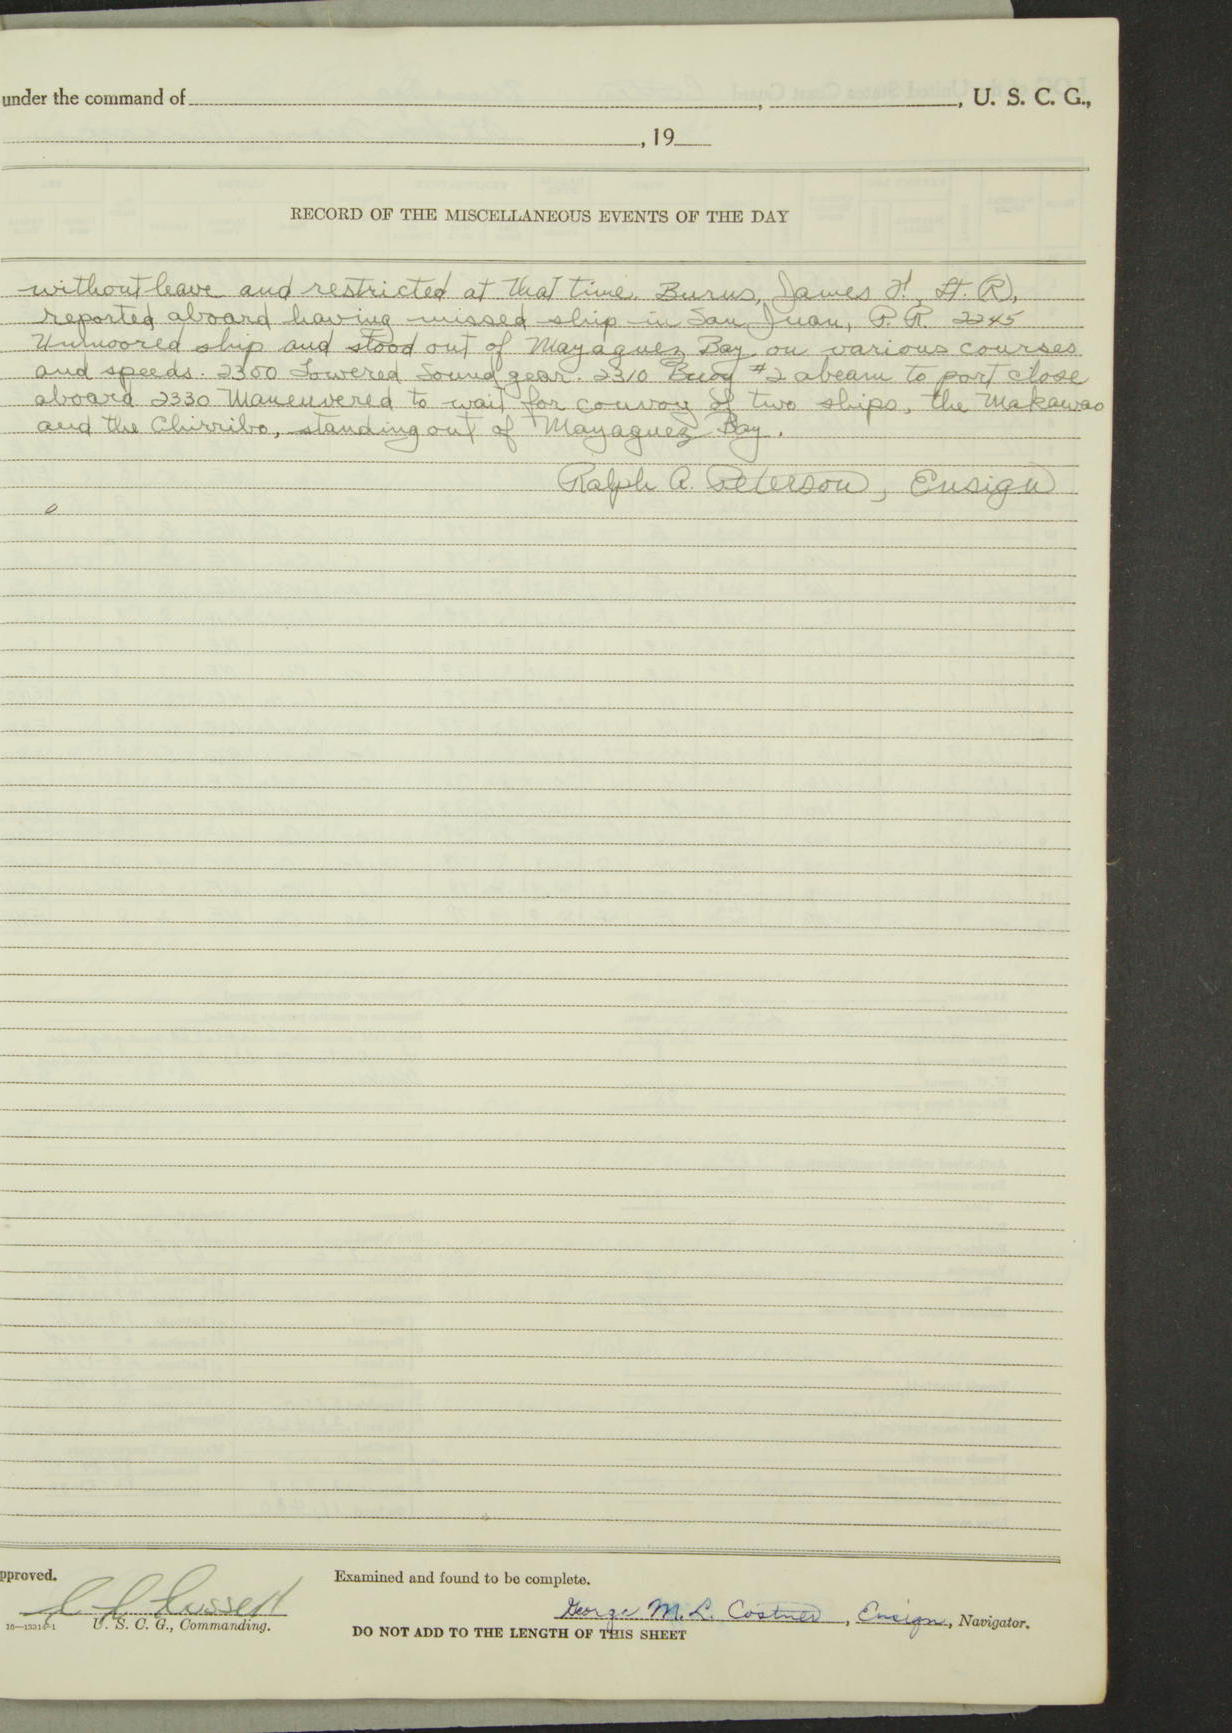 under the command of , , U. S. C. G.,
, 19
RECORD OF THE MISCELLANEOUS EVENTS OF THE DAY
without leave and restricted at that time. Burns, James F., Lt. (R),
reported aboard having missed ship in San Juan, P. R. 2245
Unmoored ship and stood out of Mayaguez Bay on various courses
and speeds. 2300 Lowered Sound gear. 2310 Buoy #2 abeam to port close
aboard 2330 Maneuvered to wait for convoy of two ships, the Makawao
and the Chirribo, standing out of Mayaguez Bay.
Ralph A. Peterson, Ensign
pproved.
Examined and found to be complete.
George M. L. Costner, Ensign, Navigator.
U. S. C. G., Commanding.
DO NOT ADD TO THE LENGTH OF THIS SHEET